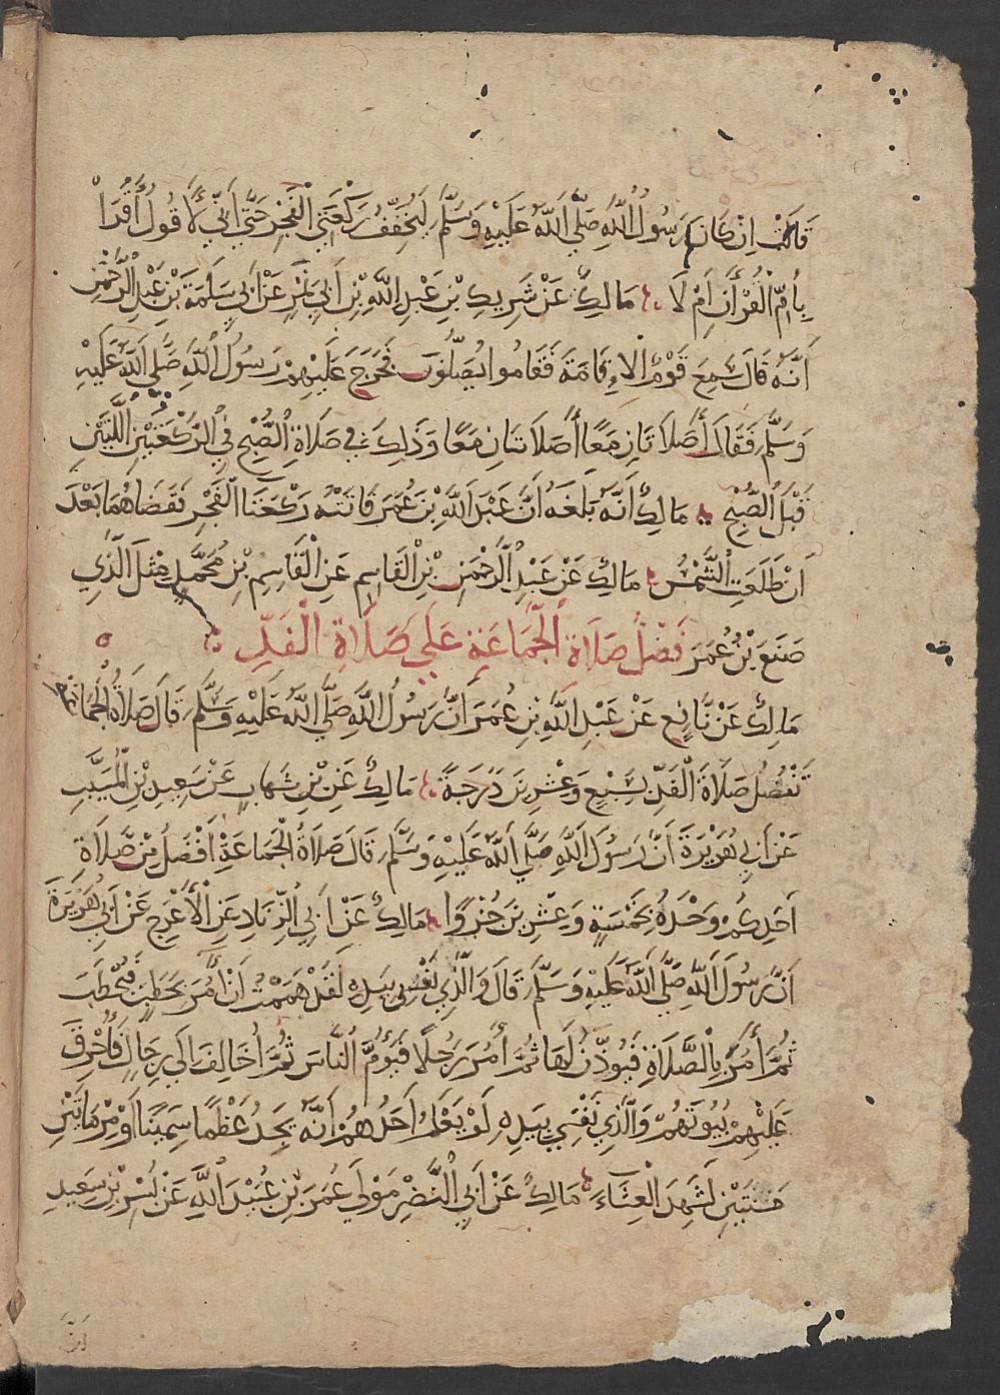 قَالَتْ اِنْ كَانَ رَسُولُ اللَّهِ صَلَّي اللَّهُ عَلَيْهِ وَسَلَّمَ لَيُخَفِّفُ رَكْعَتَيِ الْفَجْرِ حَتَّي اَنِّي لَأَقُولُ أَقْرَأَ
بِأُمِّ الْقُرْأَنِ اَمْ لَا مَالِكٌ عَنْ شَرِيكِ بْنِ عَبْدِ اللَّهِ بْنِ اَبِي نَمِرٍ عَنْ اَبِي سَلَمَةَ بْنِ عَبْدِ الرَّحْمَنِ
اَنَّهُ قَالَ سَمِعَ قَوْمٌ الْاِقَامَةَ فَقَامُوا يُصَلُّونَ فَخَرَجَ عَلَيْهِمْ رَسُولُ اللَّهِ صَلَّي اللَّهُ عَلَيْهِ
وَسَلَّمَ فَقَالَ أَصَلَاتَانِ مَعًا أَصَلَاتَانِ مَعًا وَذَلِكَ فِي صَلَاةِ الصُّبْحِ فِي الرَّكْعَتَيْنِ اللَّتَيْنِ
قَبْلَ الصُّبْحِ مَالِكٌ اَنَّهُ بَلَغَهُ اَنَّ عَبْدَ اللَّهِ بْنَ عُمَرَ فَاتَتْهُ رَكْعَتَا الْفَجْرِ فَقَضَاهُمَا بَعْدَ
اَنْ طَلَعَتِ الشَّمْسُ مَالِكٌ عَنْ عَبْدِ الرَّحْمَنِ بْنِ الْقَاسِمِ عَنِ الْقَاسِمِ بْنِ مُحَمَّدٍ مِثْلَ الَّذِي
صَنَعَ بْنُ عُمَرَ فَضْلُ صَلَاةِ الْجَمَاعَةِ عَلَي صَلَاةِ الْفَذِّ
مَالِكٌ عَنْ نَّافِعٍ عَنْ عَبْدِ اللَّهِ بْنِ عُمَرَ اَنَّ رَسُولَ اللَّهِ صَلَّي اللَّهُ عَلَيْهِ وَسَلَّمَ قَالَ صَلَاةُ الْجَمَاعَةِ
تَفْضُلُ صَلَاةَ الْفَذِّ بِسَبْعٍ وَعِشْرِينَ دَرَجَةً مَالِكٌ عَنِ بْنِ شِهَابٍ عَنْ سَعِيدِ بْنِ الْمُسَيَّبِ
عَنْ اَبِي هُرَيْرَةَ اَنَّ رَسُولَ اللَّهِ صَلَّي اللَّهُ عَلَيْهِ وَسَلَّمَ قَالَ صَلَاةُ الْجَمَاعَةِ اَفْضَلُ مِنْ صَلَاةِ
اَحَدِكُمْ وَحْدَهُ بِخَمْسَةٍ وَعِشْرِينَ جُزْءًا مَالِكٌ عَنْ اَبِي الزِّنَادِ عَنِ الْاَعْرَجِ عَنْ اَبِي هُرَيْرَةَ
اَنَّ رَسُولَ اللَّهِ صَلَّي اللَّهُ عَلَيْهِ وَسَلَّمَ قَالَ وَالَّذِي نَفْسِي بِيَدِهِ لَقَدْ هَمَمْتُ اَنْ اَمُرَ بِحَطَبٍ فَيُحْطَبَ
ثُمَّ أَمُرَ بِالصَّلَاةِ فَيُوذَّنُ لَهَا ثُمَّ أَمُرَ رَجُلًا فَيَؤُمُّ النَّاسَ ثُمَّ أُخَالِفَ اِلَي رِجَالٍ فَأُحْرِقَ
عَلَيْهِمْ بُيُوتَهُمْ وَالَّذِي نَفْسِي بِيَدِهِ لَوْ يَعْلَمُ اَحَدُهُمْ اَنَّهُ يَجِدُ عَظْمًا سَمِينًا اَوْ مِرْمَاتَيْنِ
حَسَنَتَيْنِ لَشَهِدَ الْعِشَاءَ مَالِكٌ عَنْ اَبِي النَّضْرِ مَوْلَي عُمَرَ بْنِ عُبَيْدِ اللَّهِ عَنْ بُسْرِ بْنِ سَعِيدٍ
اَنَّ